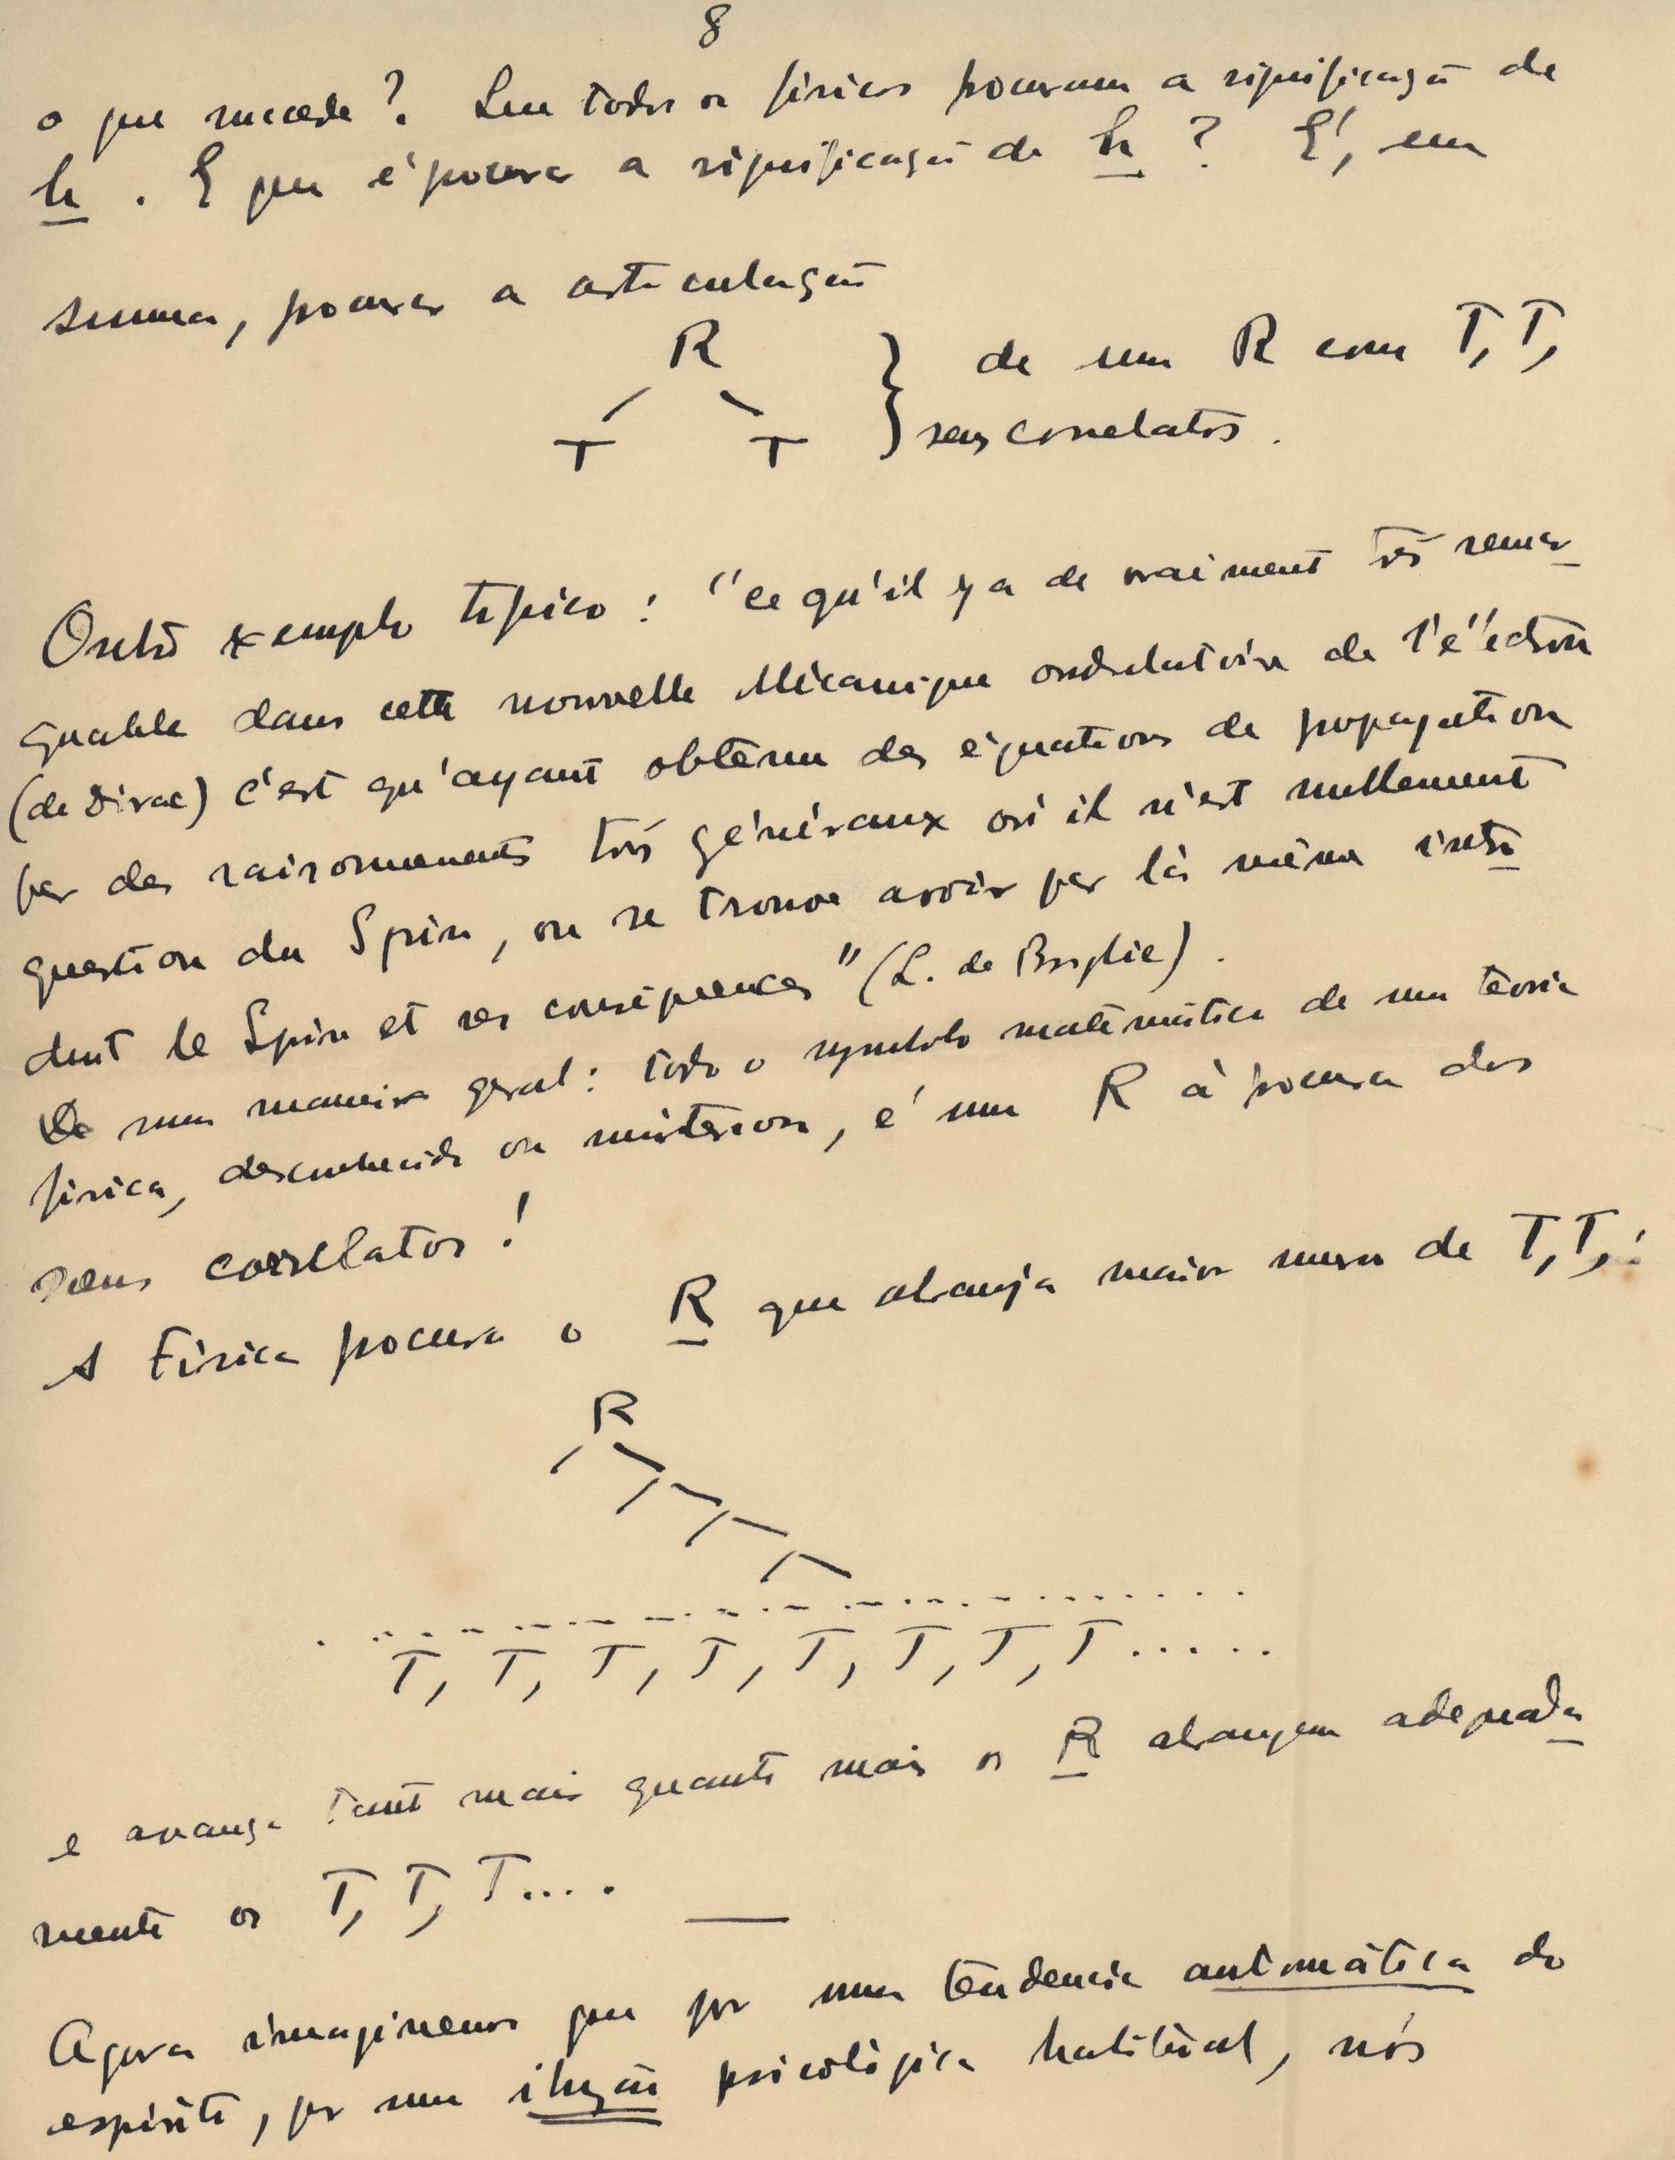 8
o que sucede? Que todos os físicos procuram a significação de
h. E que é procurar a significação de h? É, em
summa, procurar a articulação
R
T T
} de um R com T, T,
seus correlatos.
Outro exemplo típico: "ce qu'il y a de vraiment très remar-
quable dans cette nouvelle Mécanique ondulatoire de l'électron
(de Dirac) c'est qu'ayant obtenu des équations de propagation
par des raisonnements très généraux où il n'est nullement
question du Spin, on se trouve avoir par là même intro-
duit le Spin et ses conséquences" (L. de Broglie).
De uma maneira geral: todo o symbolo matemático de uma teoria
física, desconhecido ou misterioso, é um R à procura dos
seus correlatos!
A Física procura o R que abranja maior numero de T, T,:
R
T, T, T, T, T, T, T, T.....
e avança tanto mais quanto mais os R abrangem adequada-
mente os T, T, T....
Agora imaginemos que por uma tendencia automática do
espirito, por uma ilusão psicológica habitual, nós